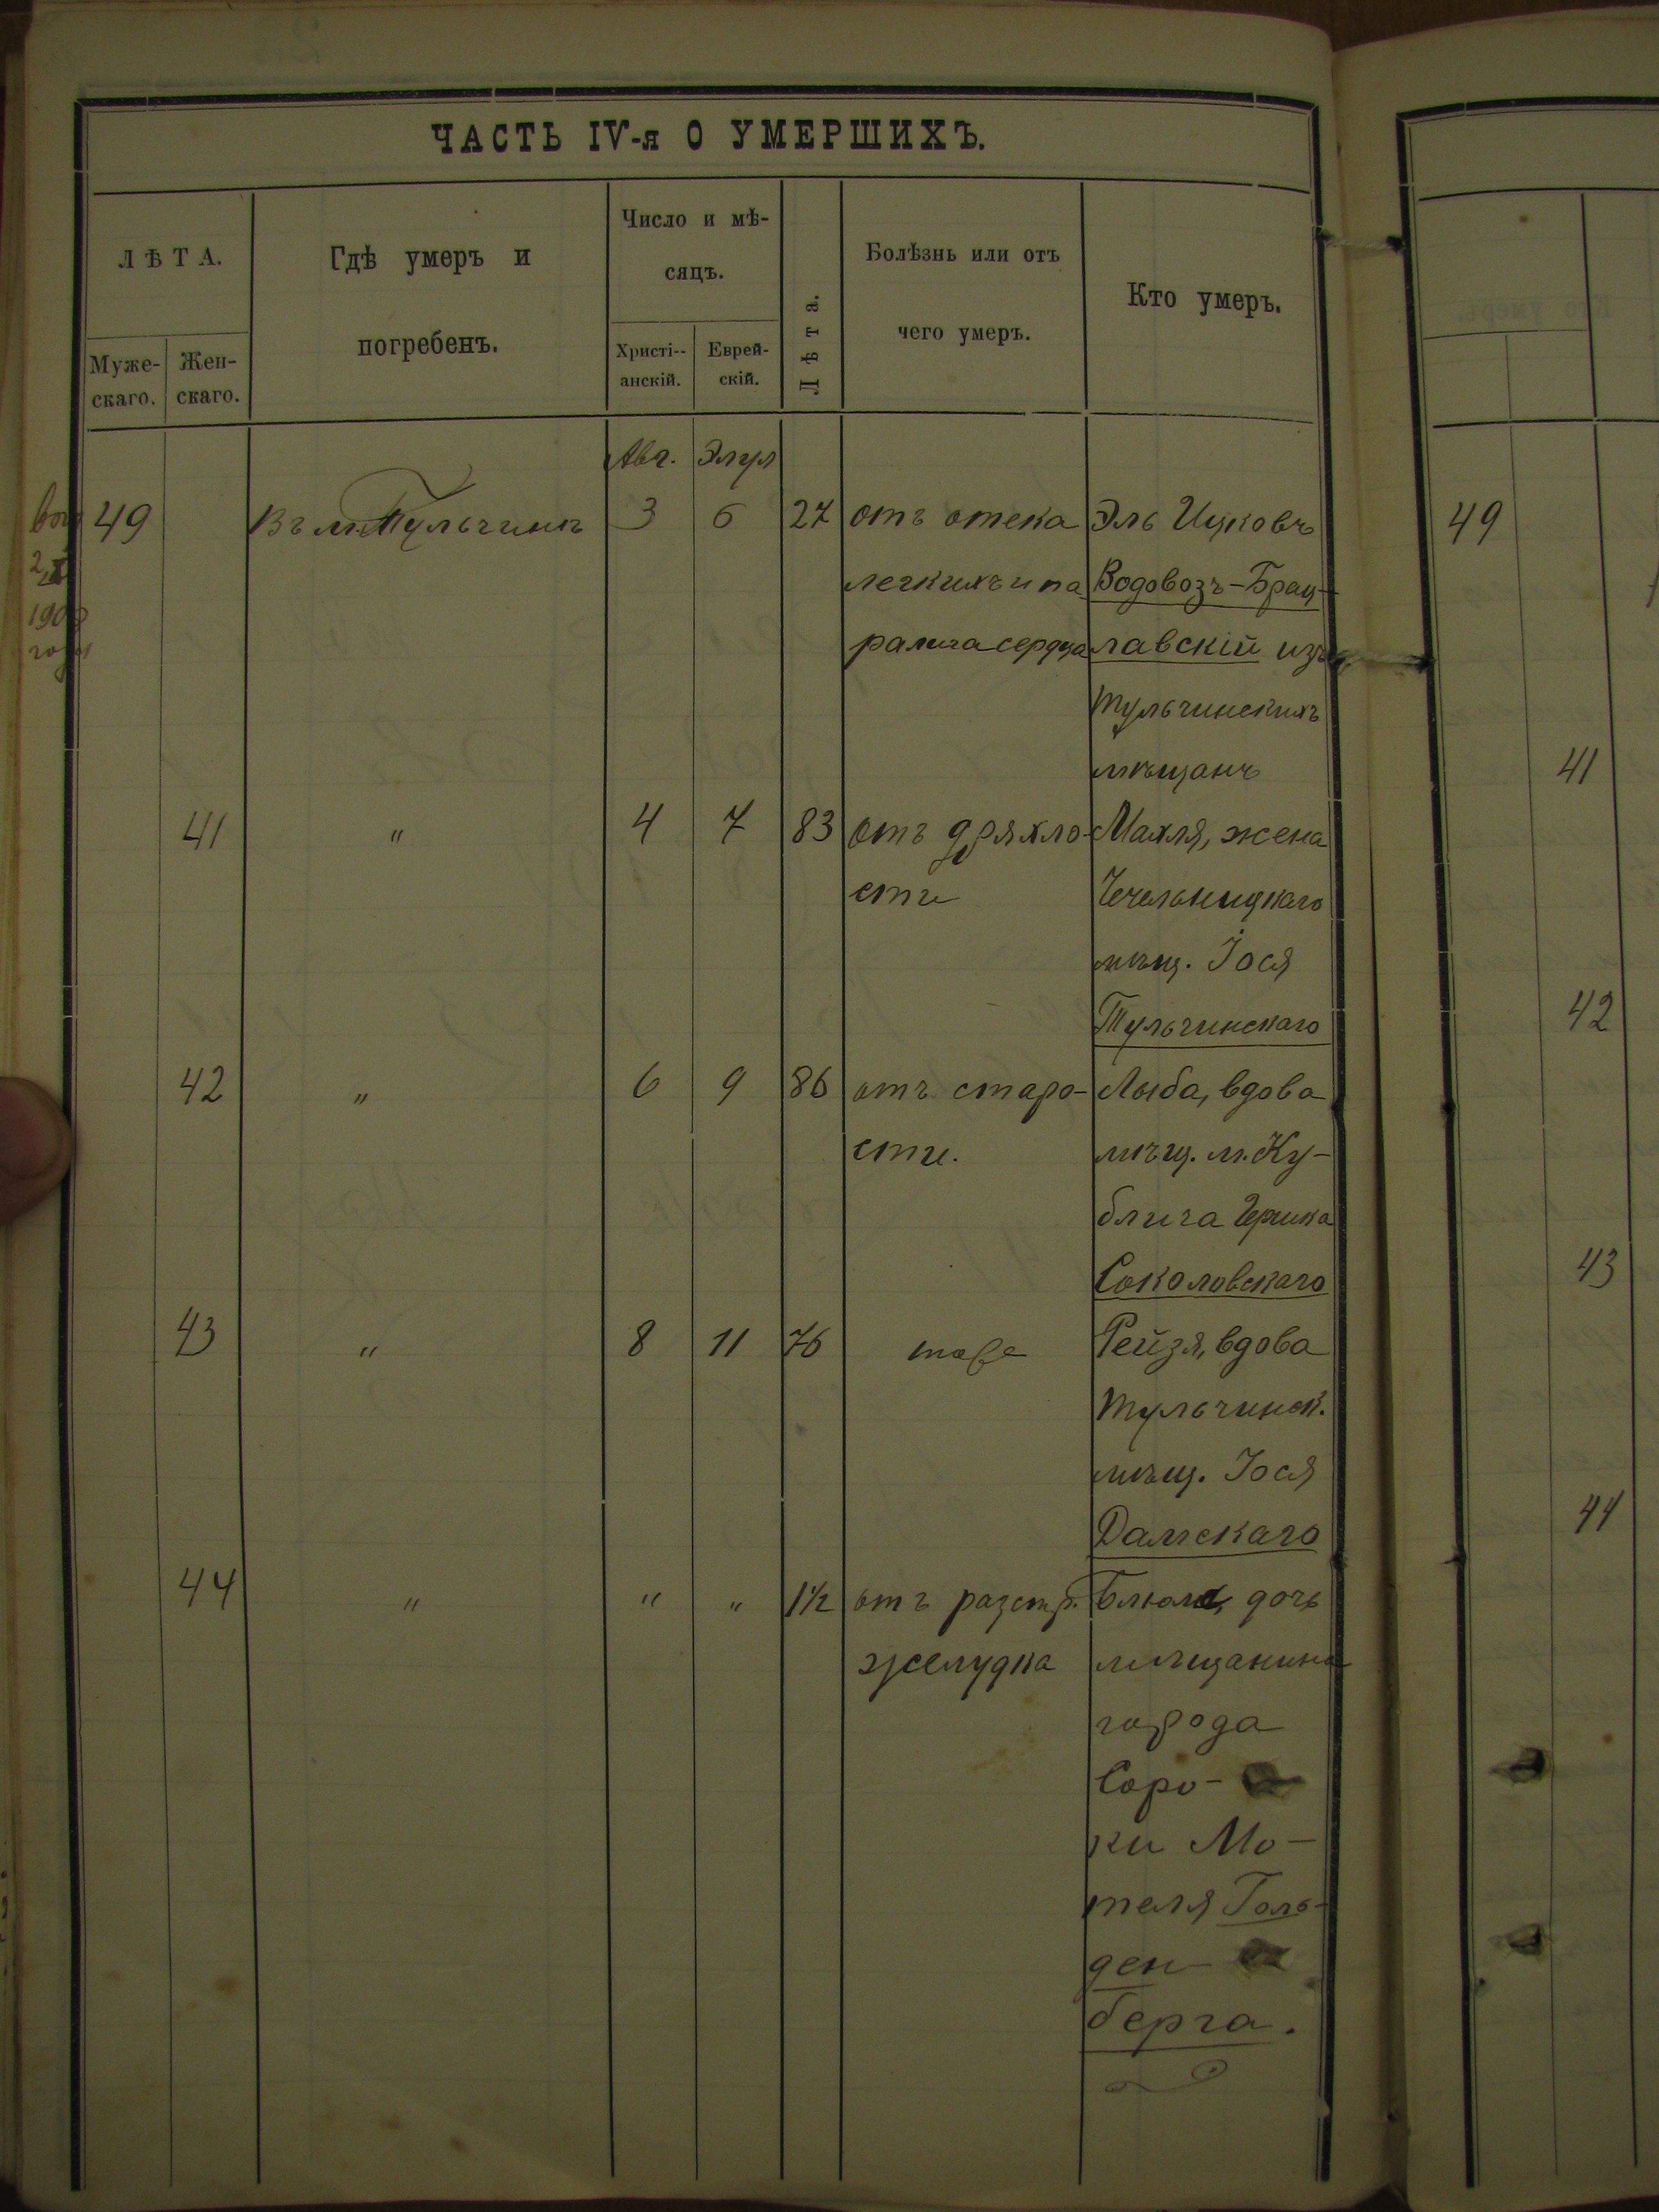 ЧАСТЬ IV-я О УМЕРШИХЪ.
ЛѢТА.
Муже-
скаго.
Жен-
скаго.
Гдѣ умеръ и
погребенъ.
Число и мѣ-
сяцъ.
Христі-
анскій.
Еврей-
скій.
Лѣта.
Болѣзнь или отъ
чего умеръ.
Кто умеръ.
Авг. Элул
49 Въ м. Тульчинѣ 3 6 27 отъ отека Эль Ицковъ
легкихъ и па Водовозъ-Брац-
ралича сердца лавскій изъ
тульчинскихъ
мѣщанъ
41 " 4 7 83 отъ дряхло- Махля, жена
сти Чечельницкаго
мѣщ. Іося
Тульчинскаго
42 " 6 9 86 отъ старо- Лыба, вдова
сти. мѣщ. м. Ку-
блича Гершка
Соколовскаго
43 " 8 11 76 тоже Рейзя, вдова
тульчинск.
мѣщ. Іося
Дамскаго
44 " " " 1½ отъ разстр. Блюма, дочь
желудка мѣщанина
города
Соро-
ки Мо-
теля Голь-
ден-
берга.
2
190
49
41
42
43
44